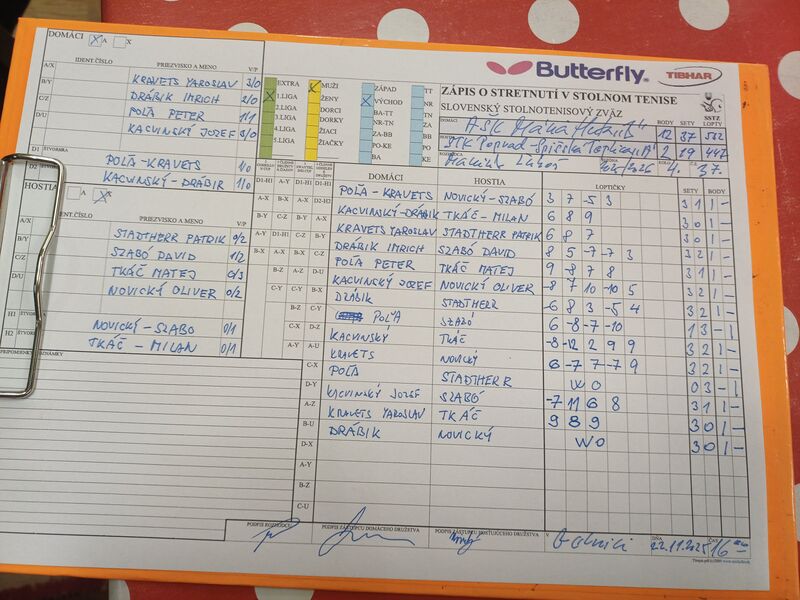 DOMÁCI X A X
IDENT.ČÍSLO PRIEZVISKO A MENO V/P
A/X KRAVETS YAROSLAV 3/0
B/Y DRÁBIK IMRICH 3/0
C/Z POĽA PETER 1/1
D/U KACVINSKÝ JOZEF 3/0
D1 ŠTVORHRA POĽA-KRAVETS 1/0
D2 KACVINSKÝ-DRÁBIK 1/0
HOSTIA A X
IDENT.ČÍSLO PRIEZVISKO A MENO V/P
A/X STADTHERR PATRIK 0/2
B/Y SZABÓ DAVID 1/2
C/Z TKÁČ MATEJ 0/3
D/U NOVICKÝ OLIVER 0/2
H1 ŠTVOR NOVICKÝ-SZABO 0/1
H2 TKÁČ - MILAN 0/1
PRIPOMIENKY
EXTRA
1.LIGA
2.LIGA
3.LIGA
4.LIGA
5.LIGA
MUŽI
ŽENY
DORCI
DORKY
ŽIACI
ŽIAČKY
ZÁPAD
VÝCHOD
BA-TT
NR-TN
ZA-BB
PO-KE
BA
TT
NR
TN
ZA
BB
PO
KE
Butterfly TIBHAR
ZÁPIS O STRETNUTÍ V STOLNOM TENISE
SLOVENSKÝ STOLNOTENISOVÝ ZVÄZ SSTZ
BODY SETY LOPTY
DOMÁCI 12 37
HOSTIA STK Poprad-Spišská 2 19 447
2025/2026 4. 37.
DOMÁCI HOSTIA LOPTIČKY SETY BODY
D1-H1 POĽA-KRAVETS NOVICKÝ-SZABÓ 3 7 -5 3 3 1 1 -
KACVINSKÝ-DRÁBIK TKÁČ-MILAN 6 8 9 3 0 1 -
KRAVETS YAROSLAV STADTHERR PATRIK 6 8 7 3 0 1 -
DRÁBIK IMRICH SZABÓ DAVID 8 5 -7 -7 3 3 2 1 -
POĽA PETER TKÁČ MATEJ 9 -8 7 8 3 1 1 -
KACVINSKÝ JOZEF NOVICKÝ OLIVER -8 7 10 -10 5 3 2 1 -
DRÁBIK STADTHERR -6 8 3 -5 4 3 2 1 -
POĽA SZABÓ 6 -8 -7 -10 1 3 - 1
KACVINSKÝ TKÁČ -8 -12 2 9 9 3 2 1 -
KRAVETS NOVICKÝ 6 -7 7 -7 9 3 2 1 -
C-X POĽA STADTHERR WO 0 3 - 1
D-Y KACVINSKÝ JOZEF SZABÓ -7 11 6 8 3 1 1 -
A-Z KRAVETS YAROSLAV TKÁČ 9 8 9 3 0 1 -
B-U DRÁBIK NOVICKÝ WO 3 0 1 -
D-X
A-Y
B-Z
C-U
PODPIS ROZHODCU PODPIS ZÁSTUPCU DOMÁCEHO DRUŽSTVA PODPIS ZÁSTUPCU HOSŤUJÚCEHO DRUŽSTVA V DŇA 22.11.2025 16
www.butterfly.sk